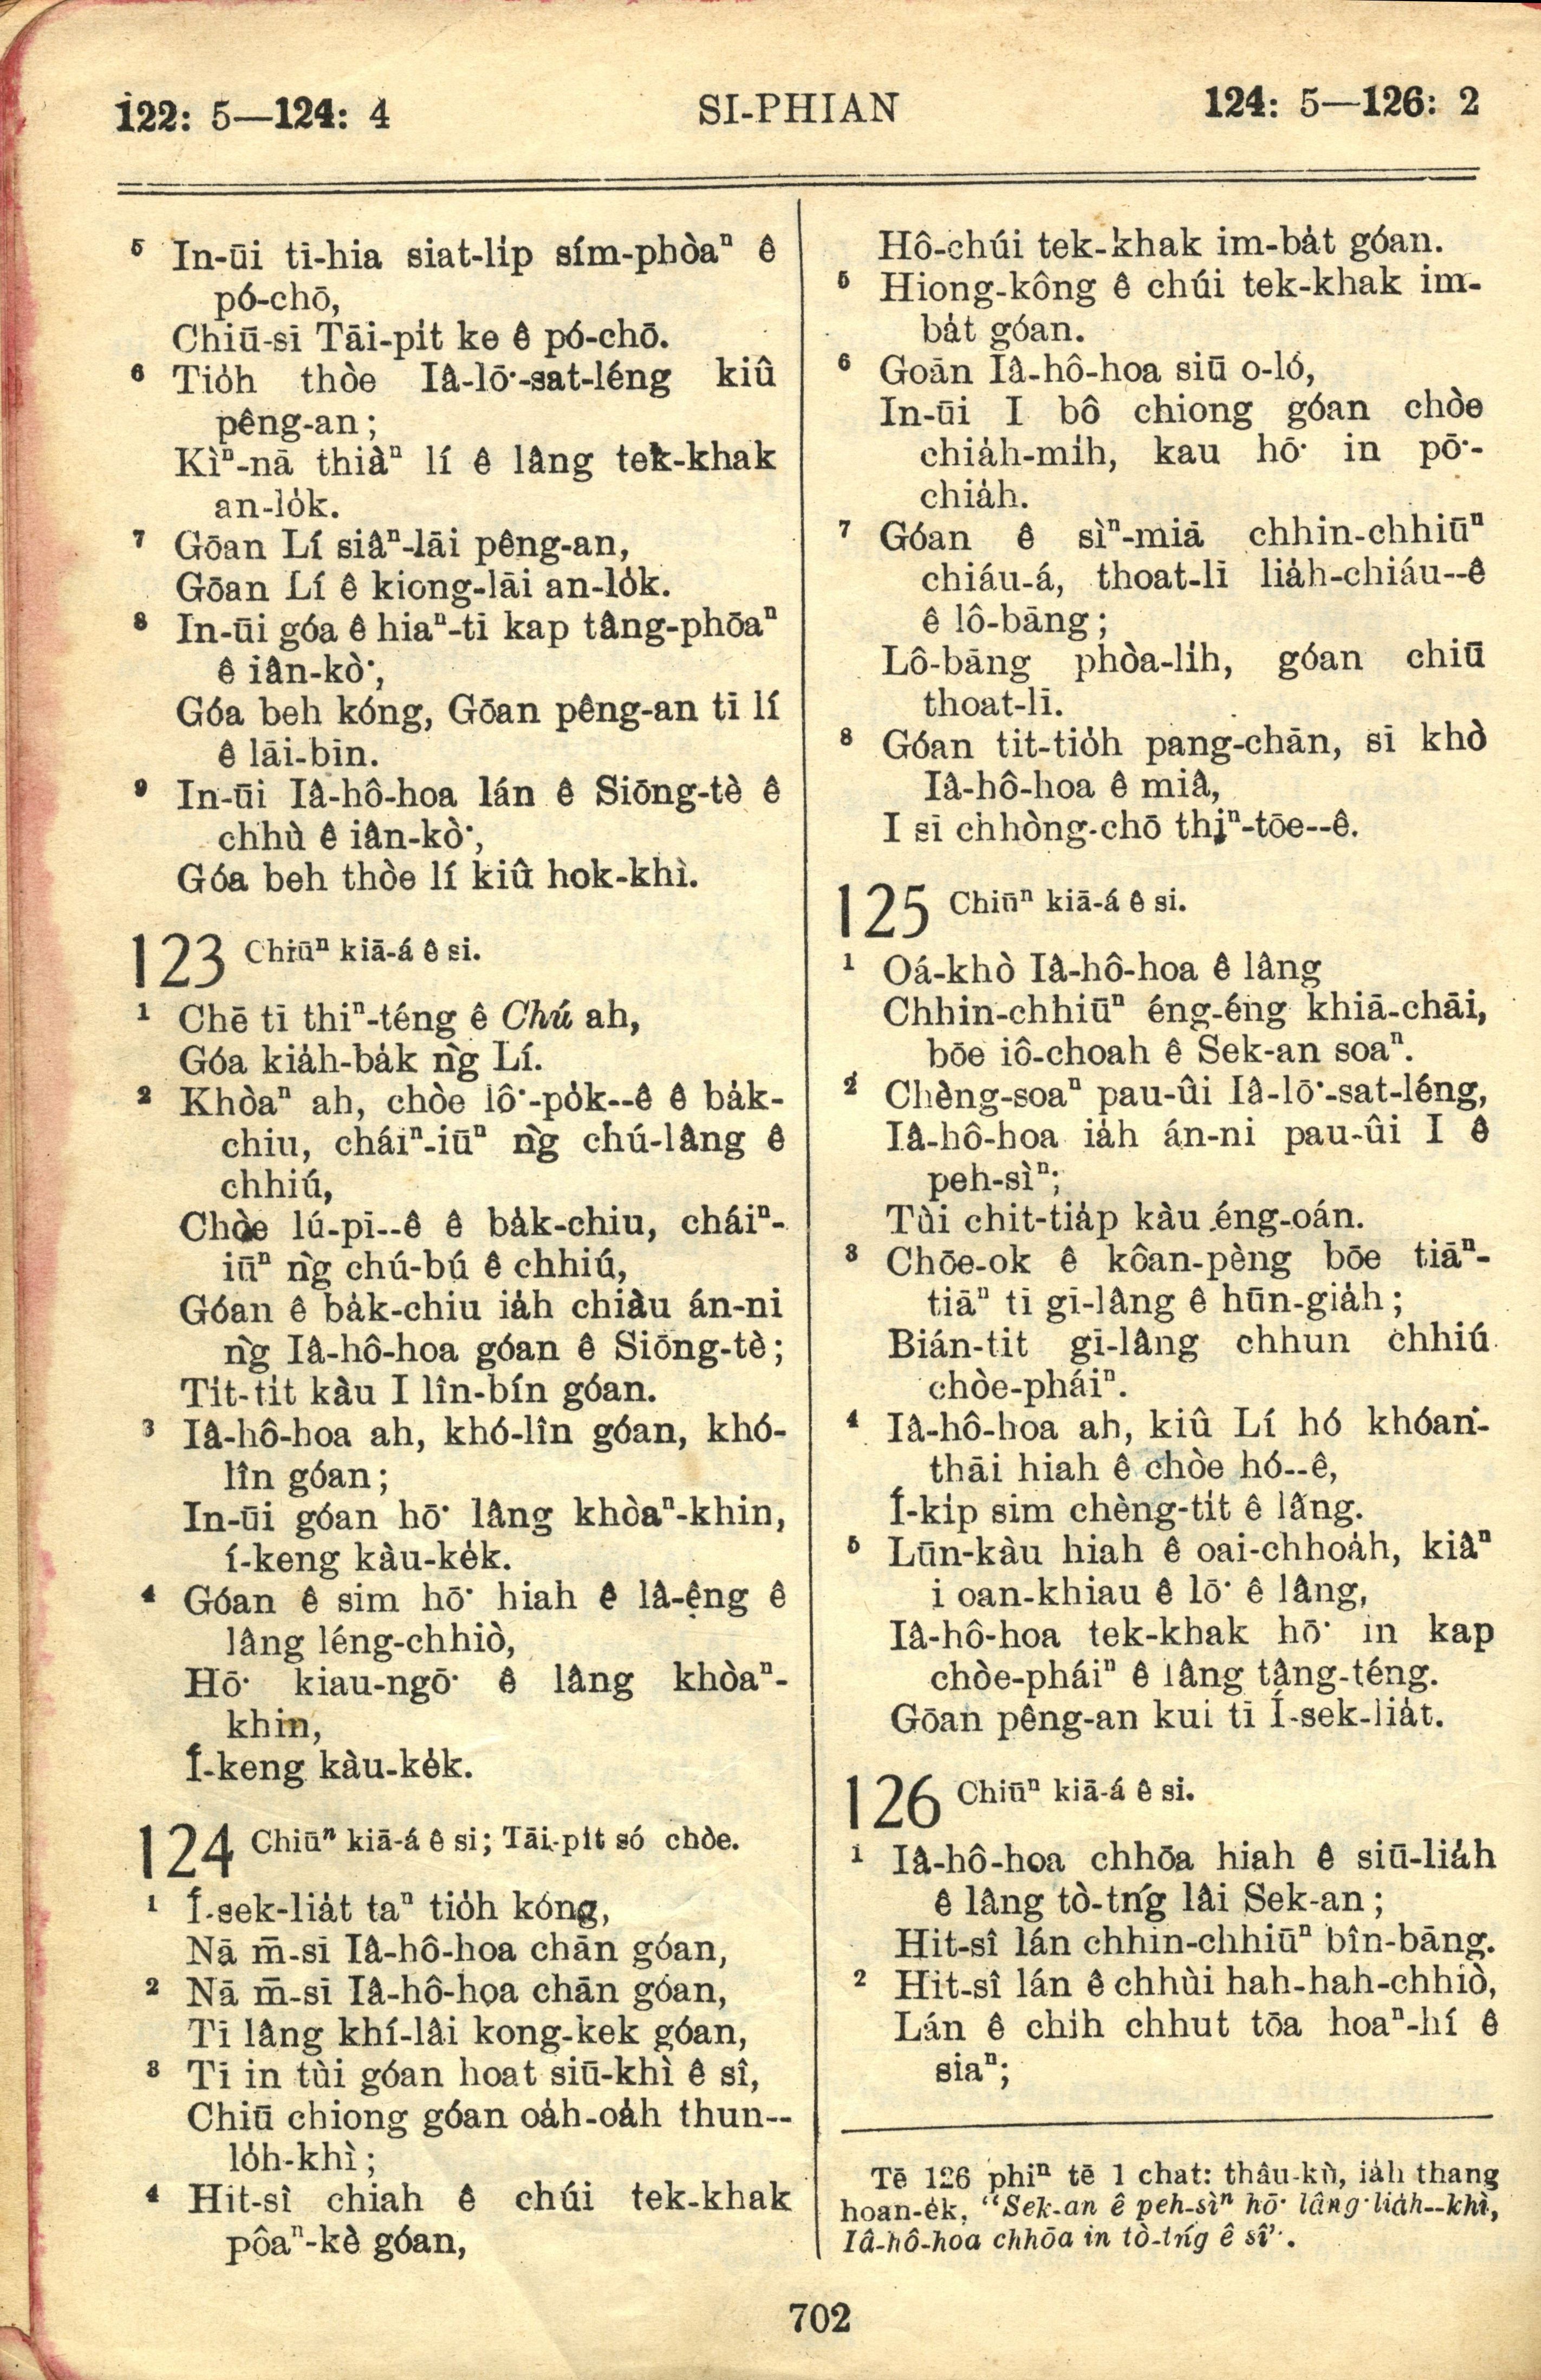 122: 5—124: 4
SI-PHIAN
124: 5—126: 2
5 In-ūi tī-hia siat-li̍p sím-phòaⁿ ê
pó-chō,
Chiū-sī Tāi-pi̍t ke ê pó-chō.
6 Tio̍h thòe Iâ-lō͘-sat-léng kiû
pêng-an;
Kìⁿ-nā thiàⁿ lí ê lâng tek-khak
an-lo̍k.
7 Gōan Lí siâⁿ-lāi pêng-an,
Gōan Lí ê kiong-lāi an-lo̍k.
8 In-ūi góa ê hiaⁿ-tī kap tâng-phōaⁿ
ê iân-kò͘,
Góa beh kóng, Gōan pêng-an tī lí
ê lāi-bīn.
9 In-ūi Iâ-hô-hoa lán ê Siōng-tè ê
chhù ê iân-kò͘,
Góa beh thòe lí kiû hok-khì.
123 Chiūⁿ kiā-á ê si.
1 Chē tī thiⁿ-téng ê Chú ah,
Góa kia̍h-ba̍k ǹg Lí.
2 Khòaⁿ ah, chòe lô͘-po̍k--ê ê ba̍k-
chiu, cháiⁿ-iūⁿ ǹg chú-lâng ê
chhiú,
Chòe lú-pī--ê ê ba̍k-chiu, cháiⁿ-
iūⁿ ǹg chú-bú ê chhiú,
Góan ê ba̍k-chiu ia̍h chiàu án-ni
ǹg Iâ-hô-hoa góan ê Siōng-tè;
Ti̍t-ti̍t kàu I lîn-bín góan.
3 Iâ-hô-hoa ah, khó-lîn góan, khó-
lîn góan;
In-ūi góan hō͘ lâng khòaⁿ-khin,
í-keng kàu-ke̍k.
4 Góan ê sim hō͘ hiah ê lâ-êng ê
lâng léng-chhiò,
Hō͘ kiau-ngō͘ ê lâng khòaⁿ-
khin,
Í-keng kàu-ke̍k.
124 Chiūⁿ kiā-á ê si; Tāi-pi̍t só chòe.
1 Í-sek-lia̍t taⁿ tio̍h kóng,
Nā m̄-sī Iâ-hô-hoa chān góan,
2 Nā m̄-sī Iâ-hô-hoa chān góan,
Tī lâng khí-lâi kong-kek góan,
3 Tī in tùi góan hoat siū-khì ê sî,
Chiū chiong góan oa̍h-oa̍h thun--
lo̍h-khì;
4 Hit-sî chiah ê chúi tek-khak
pôaⁿ-kè góan,
Hô-chúi tek-khak im-ba̍t góan.
5 Hiong-kông ê chúi tek-khak im-
ba̍t góan.
6 Goān Iâ-hô-hoa siū o-ló,
In-ūi I bô chiong góan chòe
chia̍h-mi̍h, kau hō͘ in pō͘-
chia̍h.
7 Góan ê sìⁿ-miā chhin-chhiūⁿ
chiáu-á, thoat-lī lia̍h-chiáu--ê
ê lô-bāng;
Lô-bāng phòa-li̍h, góan chiū
thoat-lī.
8 Góan tit-tio̍h pang-chān, sī khò
Iâ-hô-hoa ê miâ,
I sī chhòng-chō thiⁿ-tōe--ê.
125 Chiūⁿ kiā-á ê si.
1 Oá-khò Iâ-hô-hoa ê lâng
Chhin-chhiūⁿ éng-éng khiā-chāi,
bōe iô-choah ê Sek-an soaⁿ.
2 Chèng-soaⁿ pau-ûi Iâ-lō͘-sat-léng,
Iâ-hô-hoa ia̍h án-ni pau-ûi I ê
peh-sìⁿ;
Tùi chit-tia̍p kàu éng-oán.
3 Chōe-ok ê kôan-pèng bōe tiāⁿ-
tiāⁿ tī gī-lâng ê hūn-gia̍h;
Bián-tit gī-lâng chhun chhiú
chòe-pháiⁿ.
4 Iâ-hô-hoa ah, kiû Lí hó khóan-
thāi hiah ê chòe hó--ê,
Í-ki̍p sim chèng-ti̍t ê lâng.
5 Lūn-kàu hiah ê oai-chhoa̍h, kiâⁿ
i oan-khiau ê lō͘ ê lâng,
Iâ-hô-hoa tek-khak hō͘ in kap
chòe-pháiⁿ ê lâng tâng-téng.
Gōan pêng-an kui tī Í-sek-lia̍t.
126 Chiūⁿ kiā-á ê si.
1 Iâ-hô-hoa chhōa hiah ê siū-lia̍h
ê lâng tò-tńg lâi Sek-an;
Hit-sî lán chhin-chhiūⁿ bîn-bāng.
2 Hit-sî lán ê chhùi hah-hah-chhiò,
Lán ê chi̍h chhut tōa hoaⁿ-hí ê
siaⁿ;
Tē 126 phiⁿ tē 1 chat: thâu-kù, ia̍h thang
hoan-e̍k, “Sek-an ê peh-sìⁿ hō͘ lâng lia̍h--khì,
Iâ-hô-hoa chhōa in tò-tńg ê sî”.
702